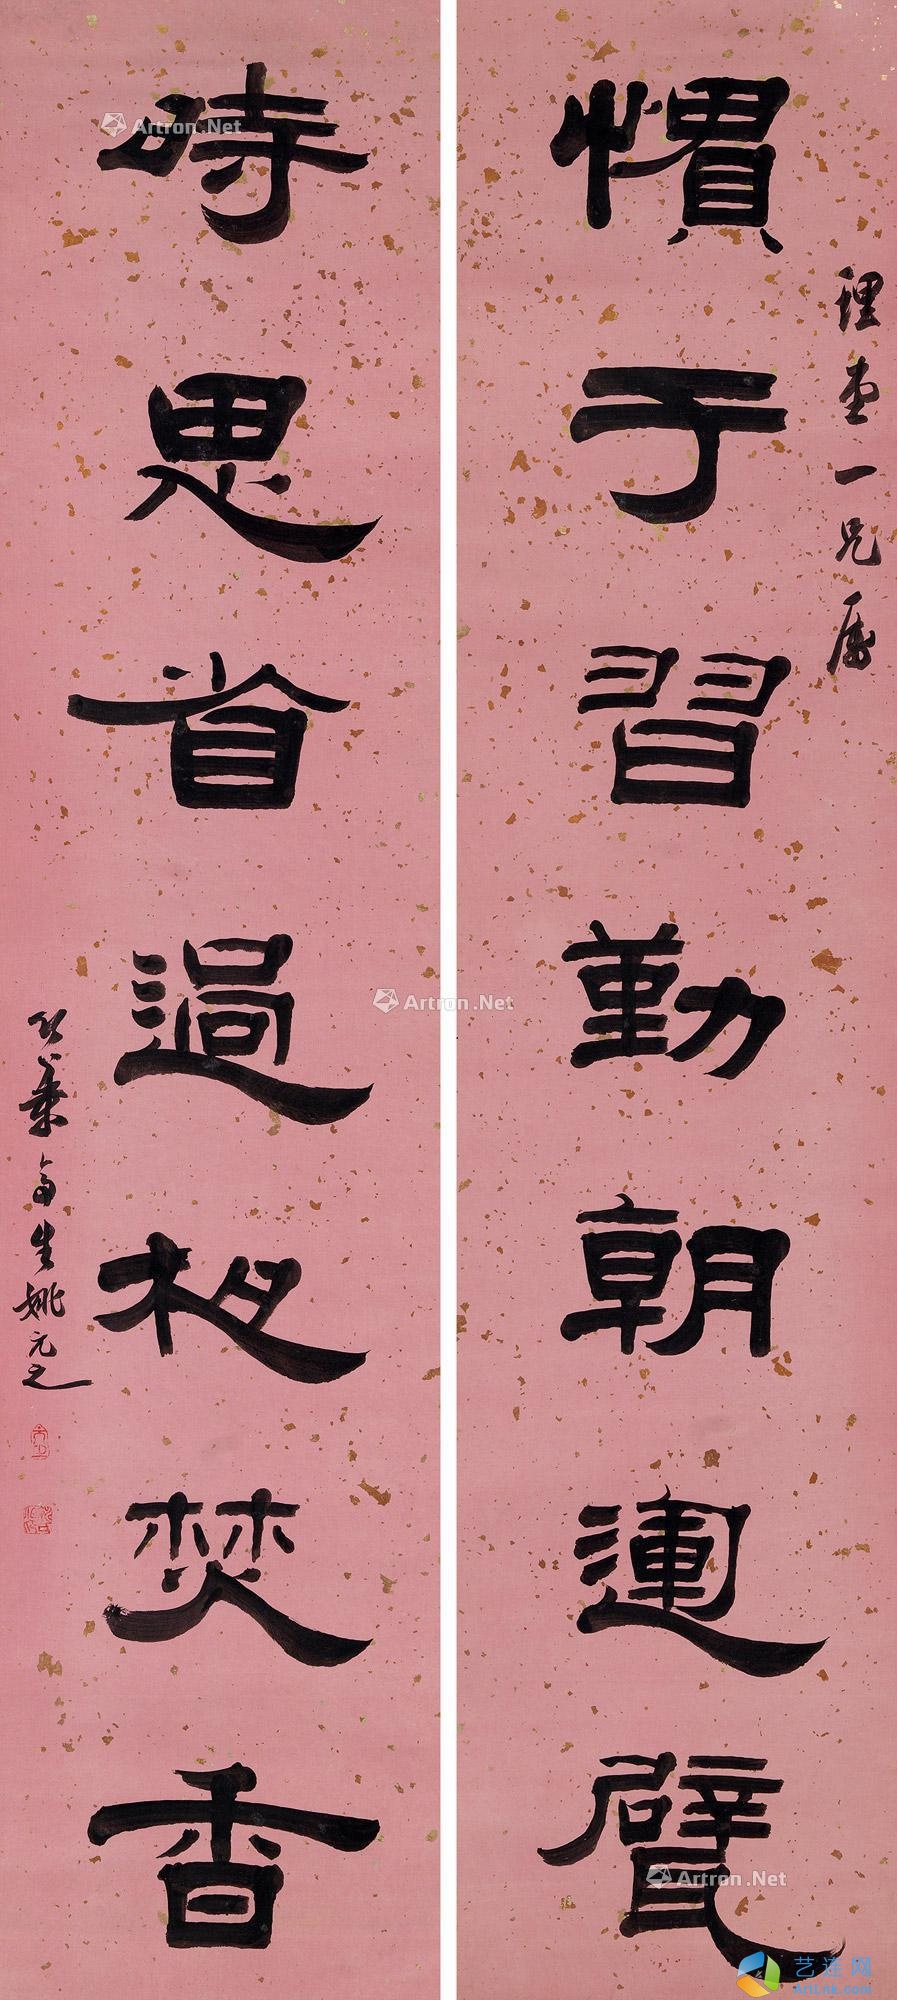 理堂一兄屬
慣于習勤朝運甓
時思省過夜焚香
竹葉亭生姚元之
Artron.Net
Artron.Net
Artron.Net
艺连网